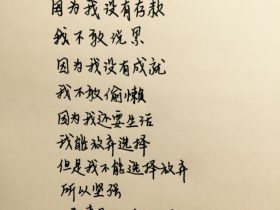 因为我没有存款
我不敢说累
因为我没有成就
我不敢偷懒
因为我还要生活
我能放弃选择
但是我不能选择放弃
所以坚强